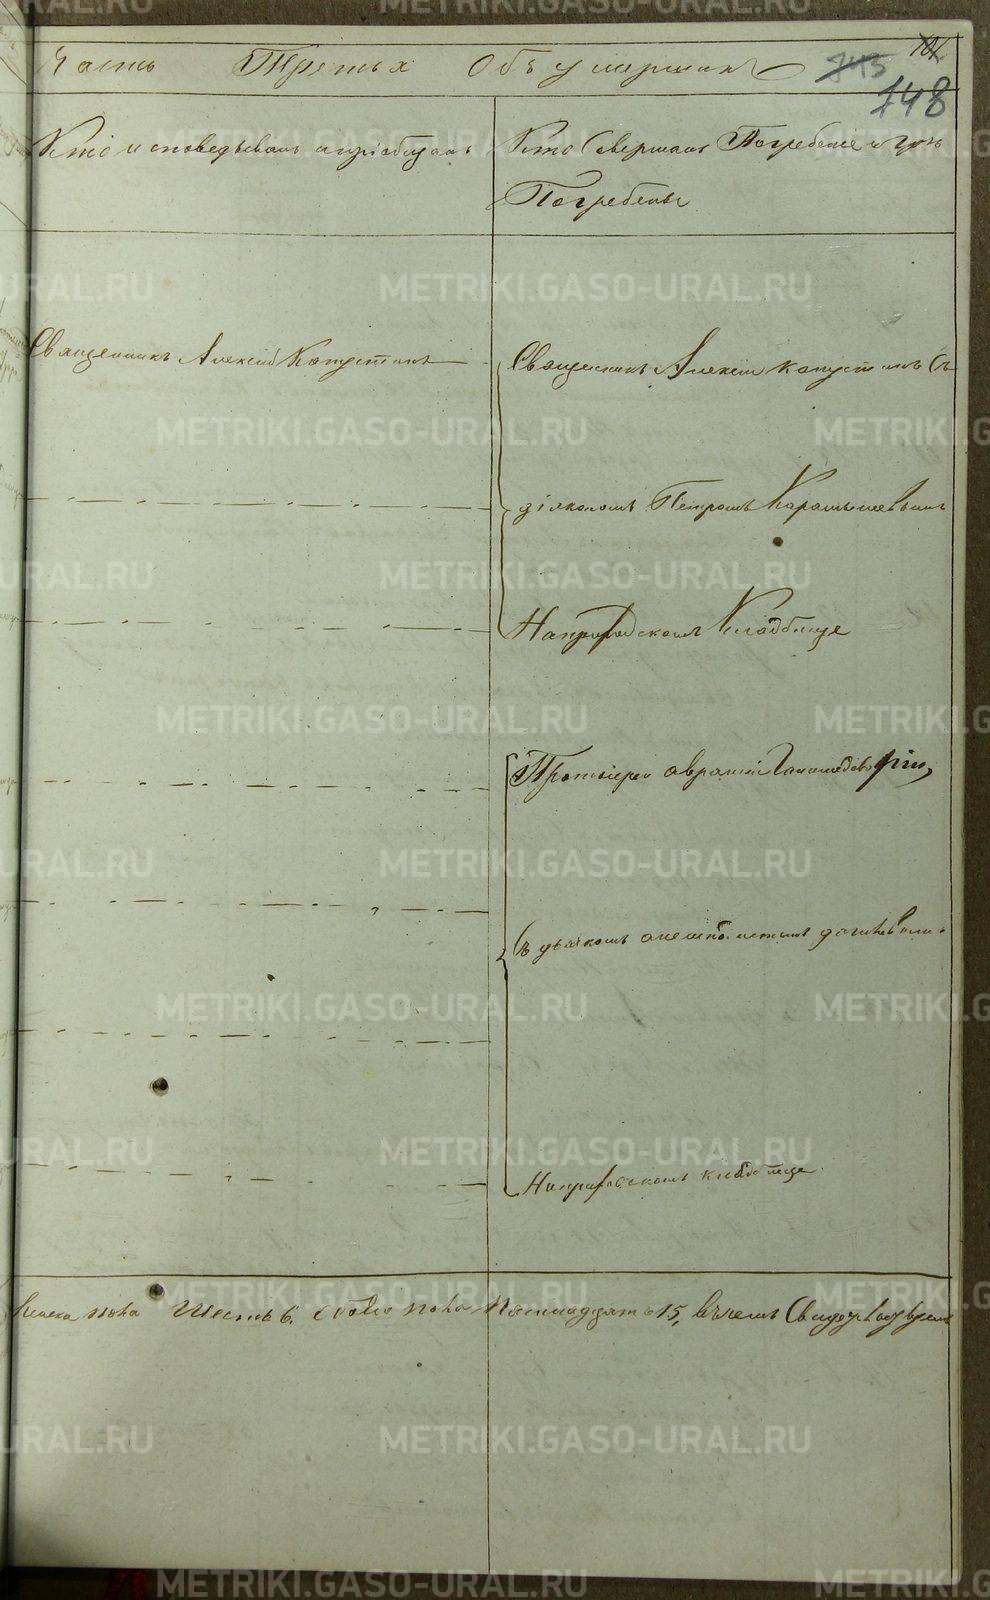 Часть Третья Объ умершихъ
148
Кто исповедывалъ и приобщалъ
Кто Совершалъ Погребение и где
Погребены
Священникъ Алексей Капустинъ
Священникъ Алексей Капустинъ Съ
діякономъ Петромъ
На приходскомъ Кладбище
Протоіерей
Съ дьячкомъ
На приходскомъ кладбище
пола Шесть 6, обоего пола Пятнаддять 15, въ чемъ Свидетельствуемъ
METRIKI.GASO-URAL.RU